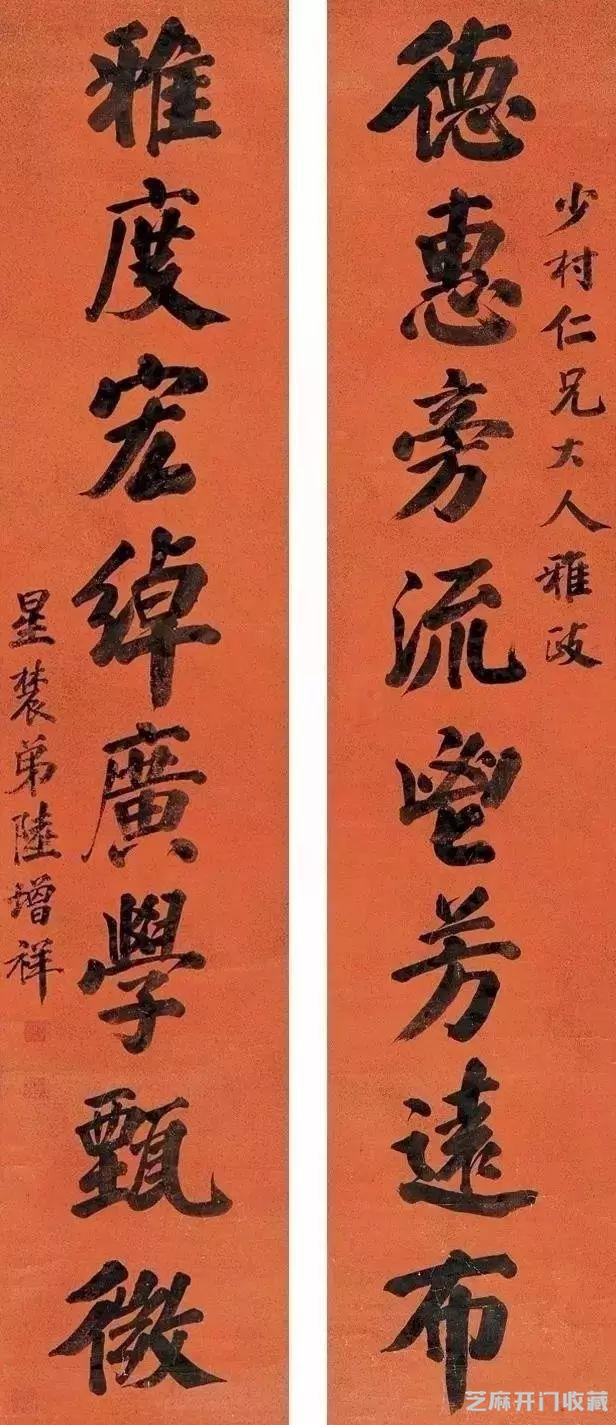 少村仁兄大人雅政
德惠旁流鬯芳遠布
雅度宏綽廣學甄微
星辳弟陸增祥
芝麻开门收藏